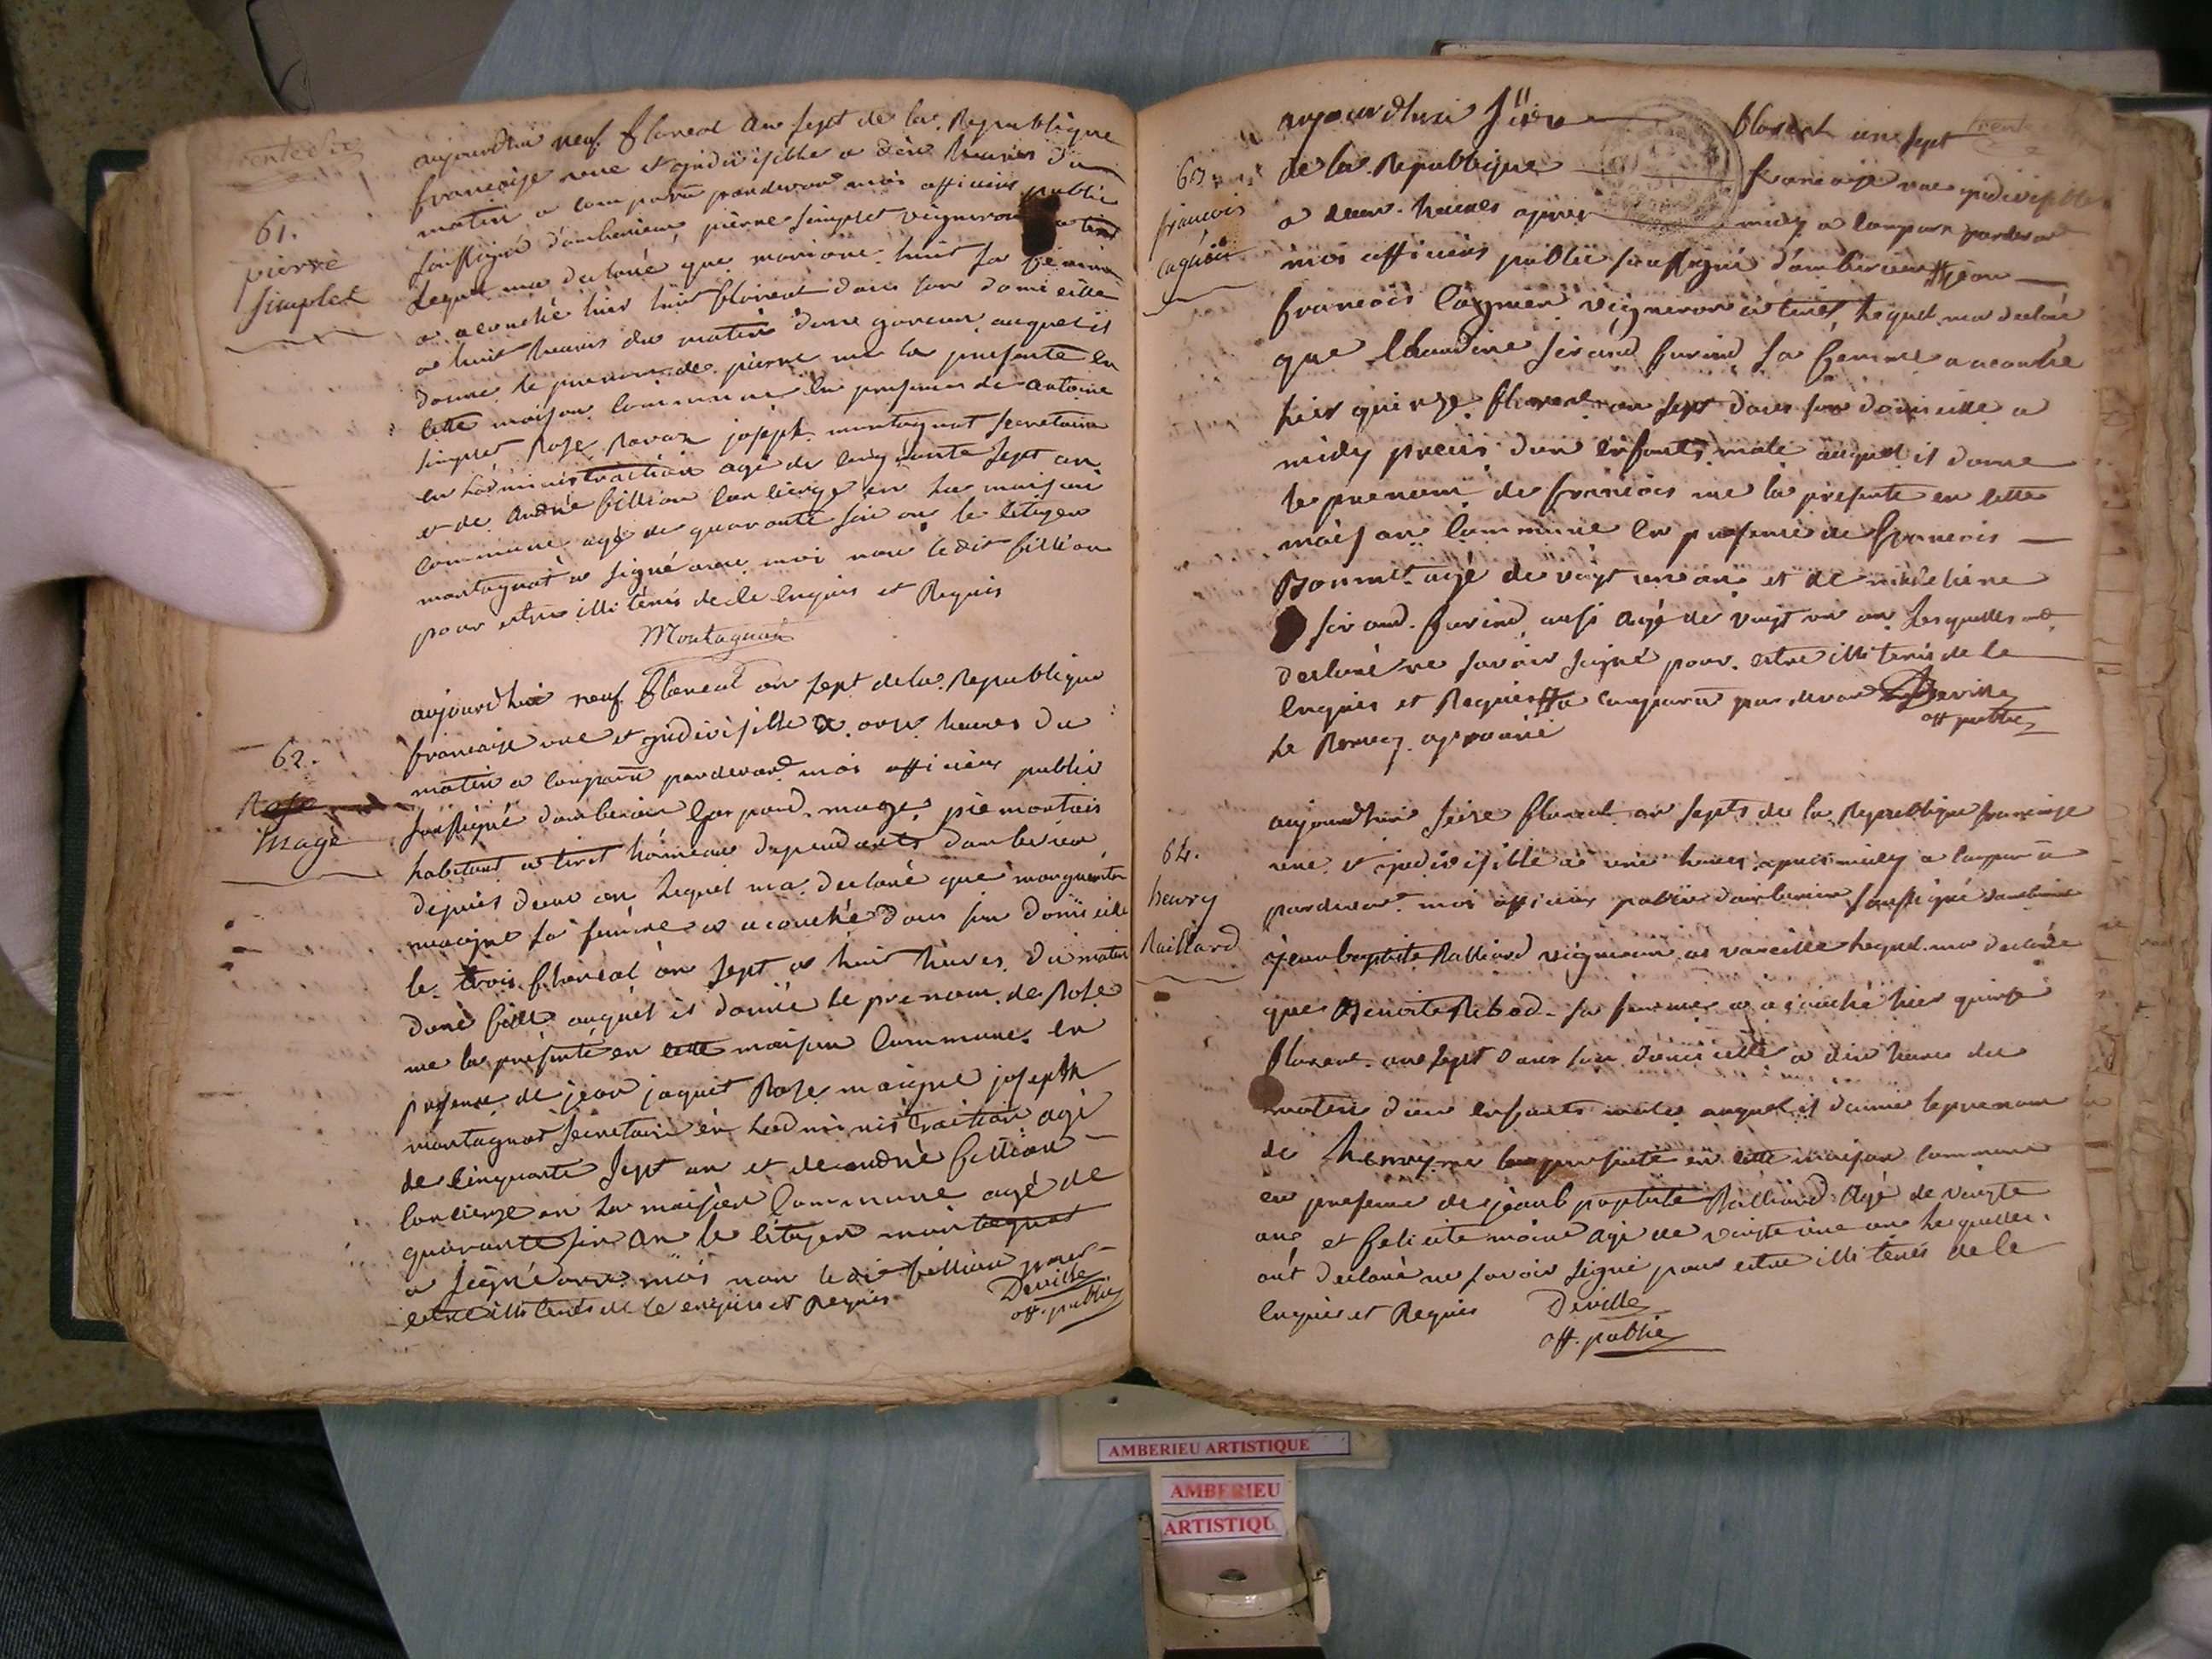 61.
pierre
simplet
aujourdhui neuf floreal an sept de la Republique
francaise une et indivisible a dix heures du
matin a comparu pardevant moi officier public
soussigné d'amberieux pierre simplet vigneron a tiret
Lequel ma declaré que mariane huit sa femme
a acouché hier huit floreal dans son domicille
a huit heures du matin dun garcon auquel il
donne le prenom de pierre me la presente en
cette maison commune en presence de antoine
simplet Rose Ravaz joseph montagnat secretaire
en Ladministraction agé de cinquante sept an
et de andré fillion concierge en la maison
commune agé de quarante six an le citoyen
montagnat a signé avec moi non ledit fillion
pour estre illiteré de ce enquis et Requis
Montagnat
62.
Rose
mage
aujourdhui neuf floreal an sept de la Republique
francaise une et indivisible a onze heures du
matin a comparu pardevant moi officier public
soussigné damberieu gaspard mage piemontais
habitant a tiret hameau dependants damberieu
depuis deux an Lequel ma declaré que marguerite
sa femme a acouché dans son domicile
le trois floreal an sept a huit heures du matin
dune fille auquel il donne le prenom de Rose
me la presenté en cette maison commune en
presence de jean jaquet Rose maigne joseph
montagnat secretaire en Ladministraction agé
de cinquante sept an et de andré fillion
concierge en la maison commune agé de
quarante six an le citoyen montagnat
a signé avec moi non ledit fillion pour
estre illiteré de ce enquis et Requis
Deville
off. public
63
francois
cagnin
aujourdhui seize floreal an sept
de la Republique francaise une indivisible
a deux heures apres midy a comparu pardevant
moi officier public soussigné d'amberieux jean
francois Cagnin vigneron a tiret Lequel ma declaré
que Claudine sirand furind sa femme a acouché
hier quinze floreal an sept dans son domicille a
midy precis dun enfants male auquel il donne
le prenom de francois me la presente en cette
maison commune en presence de francois
Bonnet agé de vingt un an et de
sirand furind ausi agé de vingt un an Lesquelles ont
declaré ne savoir signé pour estre illiteré de ce
enquis et Requis a comparu pardevant Deville
off public
le Renvoy aprouvé
64.
henry
Railliard
aujourdhui seize floreal an septs de la Republique francaise
une et indivisible a une heures apres midy a comparu
pardevant moi officier public damberieu soussigné
jean baptiste Railliard vigneron a vareille Lequel ma declaré
que Benoite Rebod sa femme a acouché hier quinze
floreal an sept dans son domicille a dix heures du
matin dun enfants male auquel il donne le prenom
de henry me la presente en cette maison commune
en presence de jean baptiste Railliard agé de vingte
ans et felicite moine agé de vingte une ans Lesquelles
ont declaré ne savoir signé pour estre illiteré de ce
enquis et Requis Deville
off. public
AMBERIEU ARTISTIQUE
AMBERIEU
ARTISTIQU